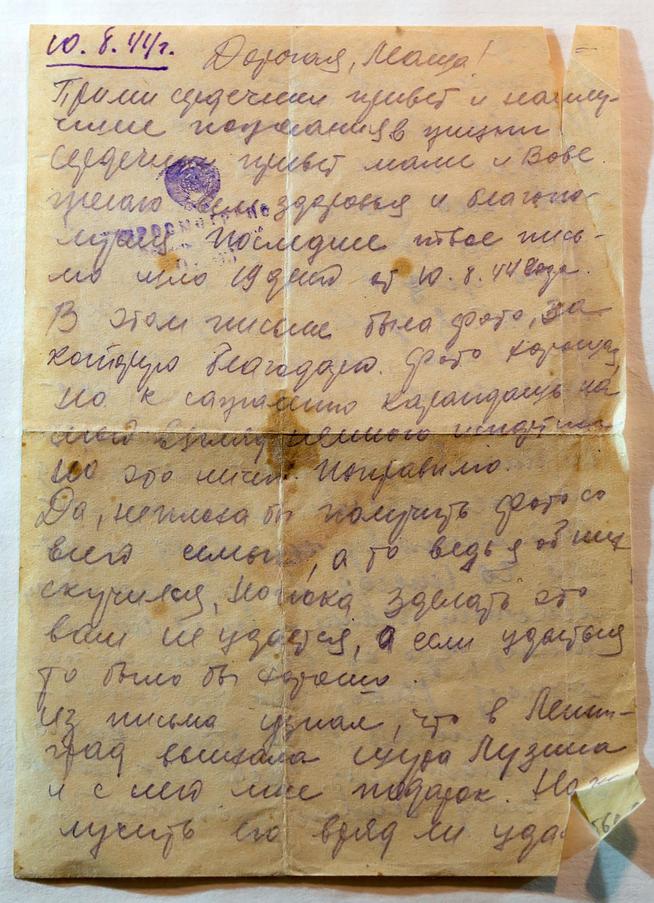 10.8.44г. Дорогая, Маша!
Прими сердечный привет и наилу-
чшие пожелания в жизни
Сердечный привет маме и Вове.
желаю вам здоровья и благопо-
лучия Последнее твое пись-
мо шло 19 дней от 10.8.44 года.
В этом письме было фото, за
которую благодарю. Фото хорошая,
но к сожалению карандаш на
мой взгляд немного
но это ничего. Поправимо.
Да, неплохо бы получить фото со
всей семьи, а то ведь я об них
скучился, но пока зделать это
вам не удастся, а если удасться
то было бы хорошо.
Из письма узнал, что в Ленин-
град выехала Шура Лузина
и с ней мне подарок. Но
лучить его вряд ли уда-